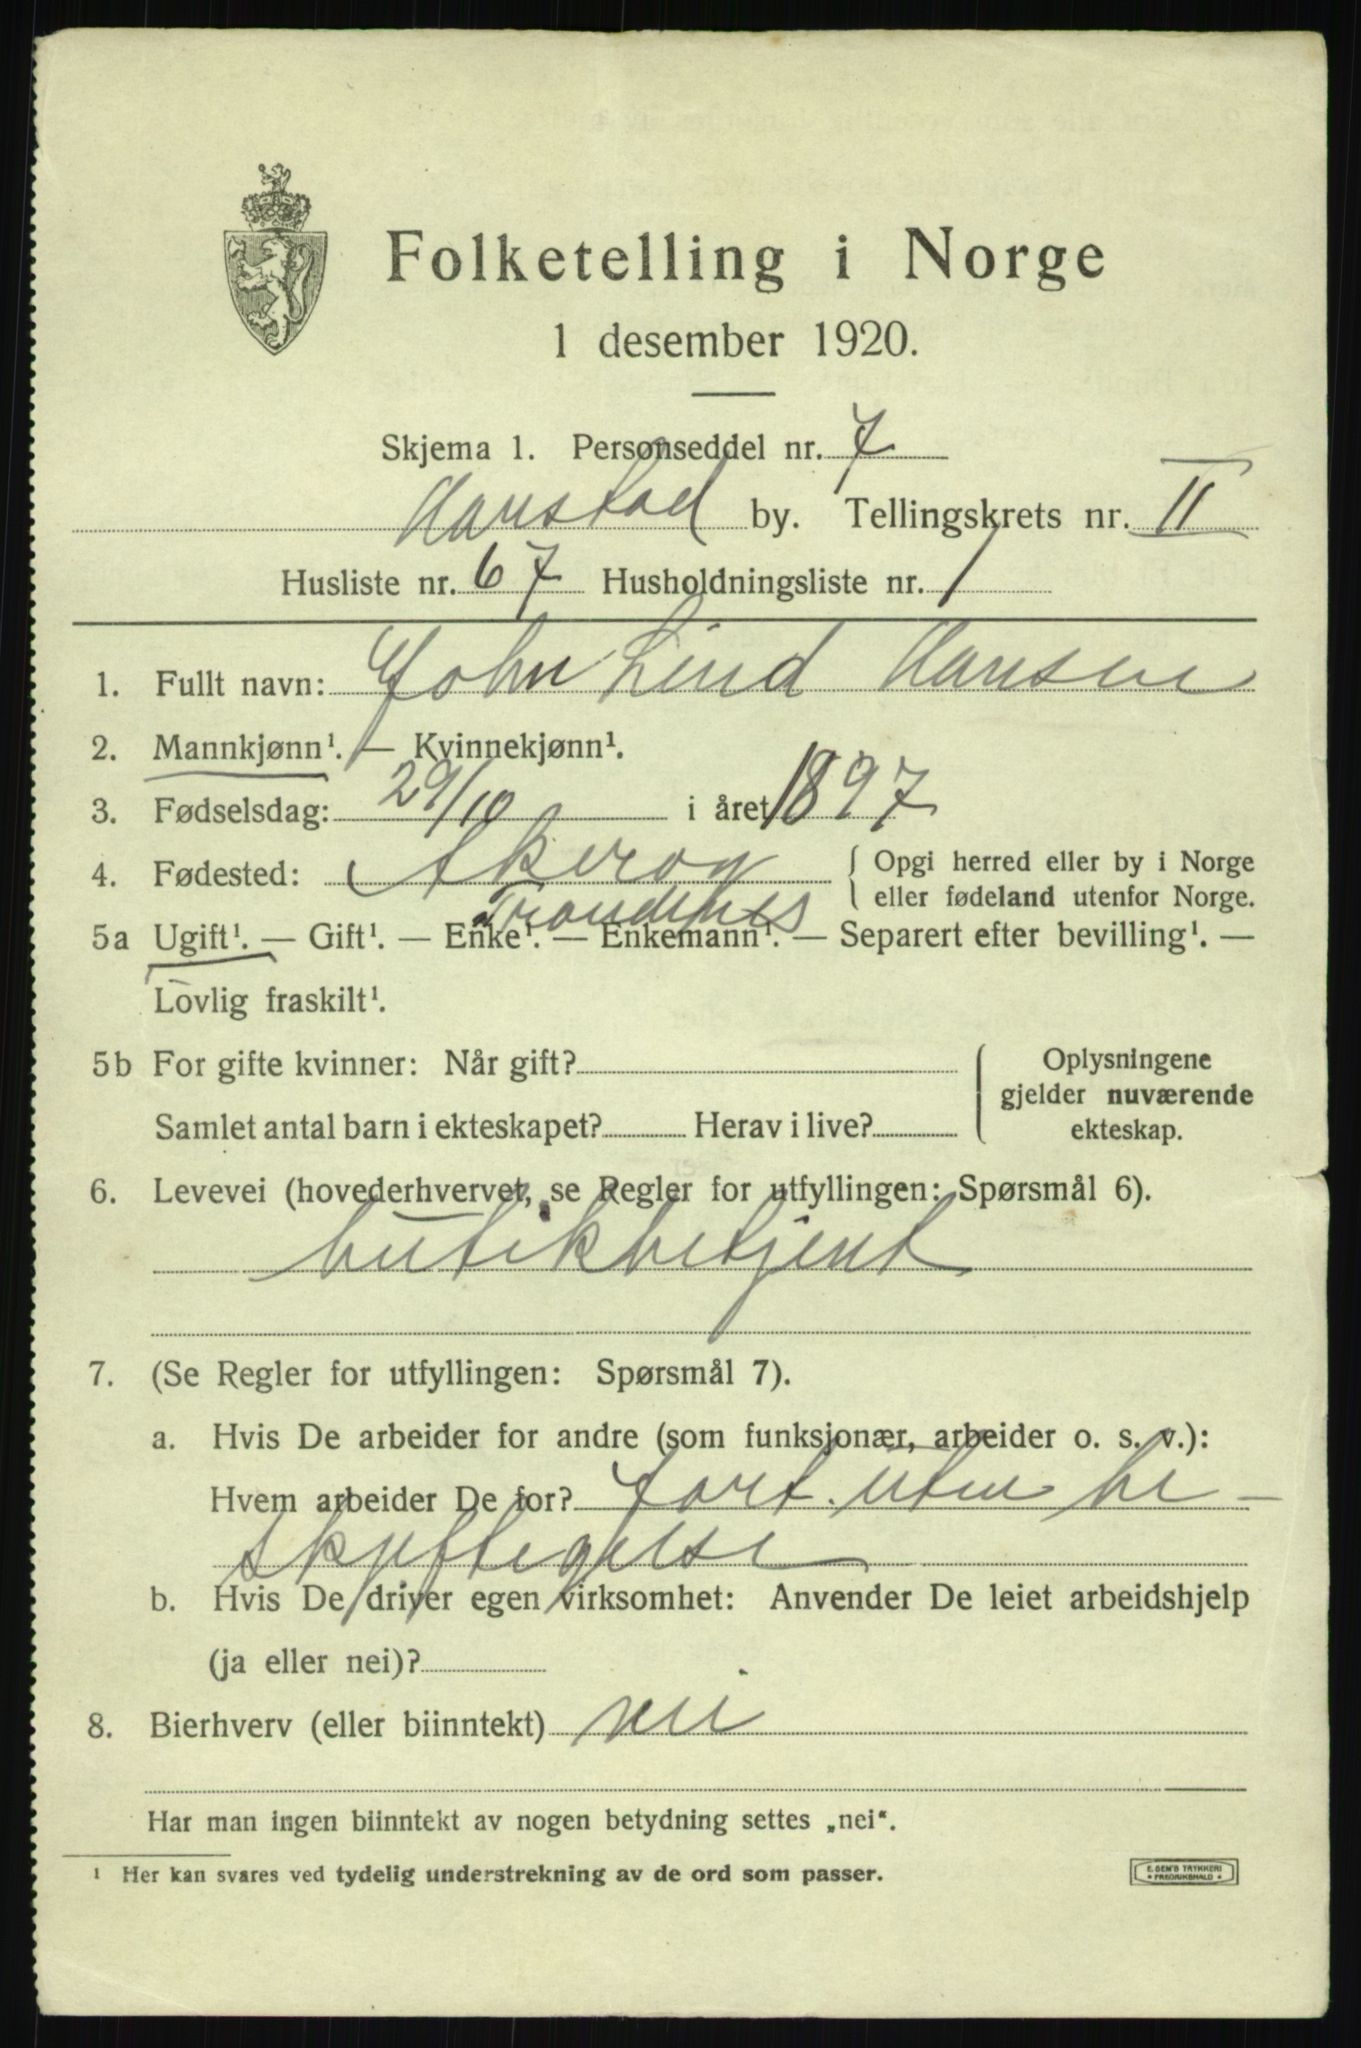 Folketelling i Norge
1 desember 1920.
Skjema 1. Personseddel nr. 7
Harstad by. Tellingskrets nr. II
Husliste nr. 67 Husholdningsliste nr. 1
1. Fullt navn: John Lind Hansen
2. Mannkjønn¹. — Kvinnekjønn¹.
3. Fødselsdag: 29/10 i året 1897
4. Fødested: Akerøy { Opgi herred eller by i Norge
Trondenes eller fødeland utenfor Norge.
5a Ugift¹. — Gift¹. — Enke¹. — Enkemann¹. — Separert efter bevilling¹. —
Lovlig fraskilt¹.
5b For gifte kvinner: Når gift? { Oplysningene
gjelder nuværende
Samlet antal barn i ekteskapet? Herav i live? ekteskap.
6. Levevei (hovederhvervet, se Regler for utfyllingen: Spørsmål 6).
butikbetjent
7. (Se Regler for utfyllingen: Spørsmål 7).
a. Hvis De arbeider for andre (som funksjonær, arbeider o. s. v.):
Hvem arbeider De for? fort. uten be-
skjeftigelse
b. Hvis De driver egen virksomhet: Anvender De leiet arbeidshjelp
(ja eller nei)?
8. Bierhverv (eller biinntekt) nei
Har man ingen biinntekt av nogen betydning settes „nei“.
¹ Her kan svares ved tydelig understrekning av de ord som passer.
E. SEM'S TRYKKERI
FREDRIKSHALD